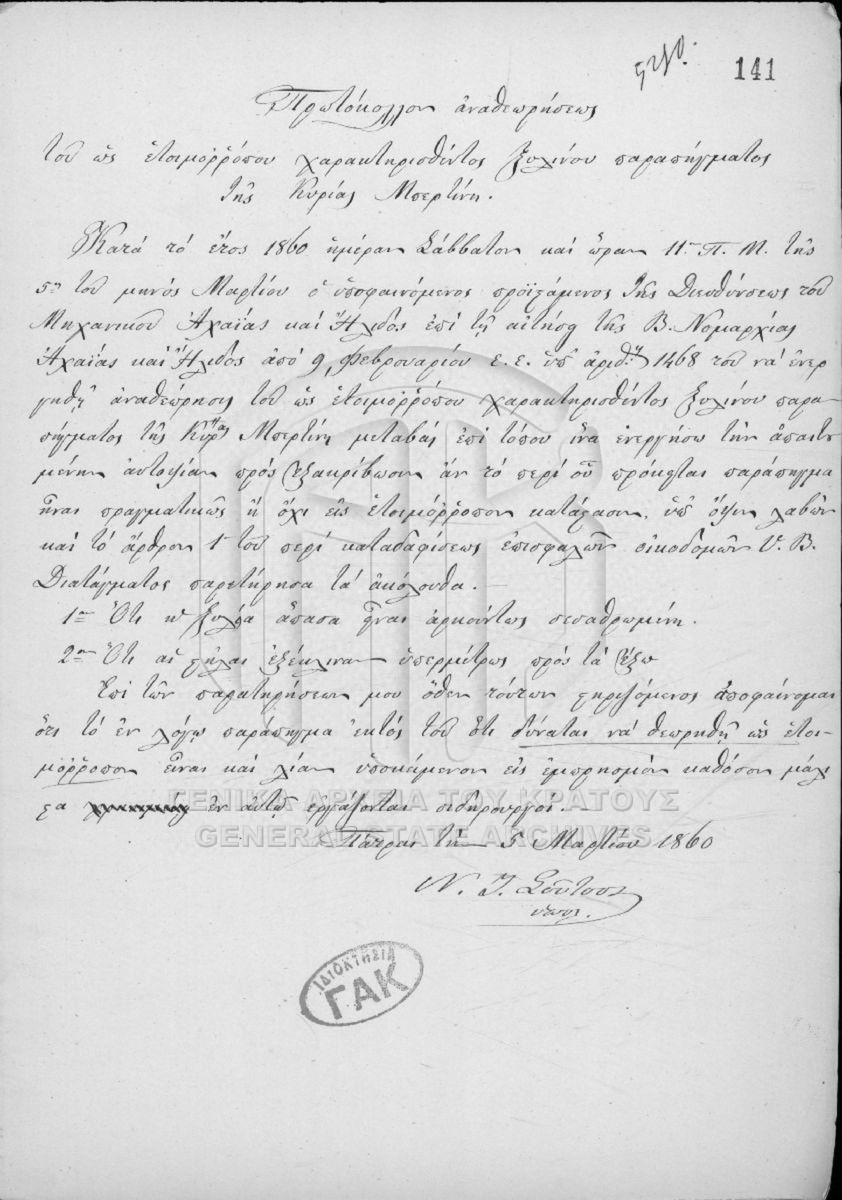 141
Πρωτόκολλον ἀναθεωρήσεως
τοῦ ὡς ἑτοιμοῤῥόπου χαρακτηρισθέντος ξυλίνου παραπήγματος
τῆς Κυρίας Μπερτίνη.
Κατὰ τὸ ἔτος 1860 ἡμέραν Σάββατον καὶ ὥραν 11ην Π. Μ. τῆς
5ης τοῦ μηνὸς Μαρτίου ὁ ὑποφαινόμενος προϊστάμενος τῆς Διευθύνσεως τοῦ
Μηχανικοῦ Ἀχαΐας καὶ Ἤλιδος ἐπὶ τῇ αἰτήσῃ τῆς Β. Νομαρχίας
Ἀχαΐας καὶ Ἤλιδος ἀπὸ 9 Φεβρουαρίου ἐ. ἔ. ὑπ' ἀριθ. 1468 τοῦ νὰ ἐνερ
γηθῇ ἀναθεώρησις τοῦ ὡς ἑτοιμοῤῥόπου χαρακτηρισθέντος ξυλίνου παρα-
πήγματος τῆς Κυρίας Μπερτίνη μεταβὰς ἐπὶ τόπου ἵνα ἐνεργήσω τὴν ἀπαιτου
μένην αὐτοψίαν πρὸς ἐξακρίβωσιν ἂν τὸ περὶ οὗ πρόκειται παράπηγμα
ἦναι πραγματικῶς ἢ ὄχι εἰς ἑτοιμόῤῥοπον κατάστασιν, ὑπ' ὄψιν λαβὼν
καὶ τὸ ἄρθρον 1 τοῦ περὶ κατεδαφίσεως ἐπισφαλῶν οἰκοδομῶν Υ. Β.
Διατάγματος παρετήρησα τὰ ἀκόλουθα. -
1ον Ὅτι ἡ ξυλεία ἅπασα ἦναι ἀρκούντως σεσαθρωμένη.
2ον Ὅτι αἱ στῆλαι ἐξέκλιναν ὑπερμέτρως πρὸς τὰ ἔξω
Ἐπὶ τῶν παρατηρήσεων μου ὅθεν τούτων στηριζόμενος ἀποφαίνομαι
ὅτι τὸ ἐν λόγῳ παράπηγμα ἐκτὸς τοῦ ὅτι δύναται νὰ θεωρηθῇ ὡς ἑτοι-
μόῤῥοπον εἶναι καὶ λίαν ὑποκείμενον εἰς ἐμπρησμὸν καθόσον μάλι
στα ἐν αὐτῷ ἐργάζονται σιδηρουργοί. -
Πάτραι τῇ 5 Μαρτίου 1860
Ν. Ι. Σοῦτσος
ΓΕΝΙΚΑ ΑΡΧΕΙΑ ΤΟΥ ΚΡΑΤΟΥΣ
GENERAL STATE ARCHIVES
ΙΔΙΟΚΤΗΣΙΑ
ΓΑΚ